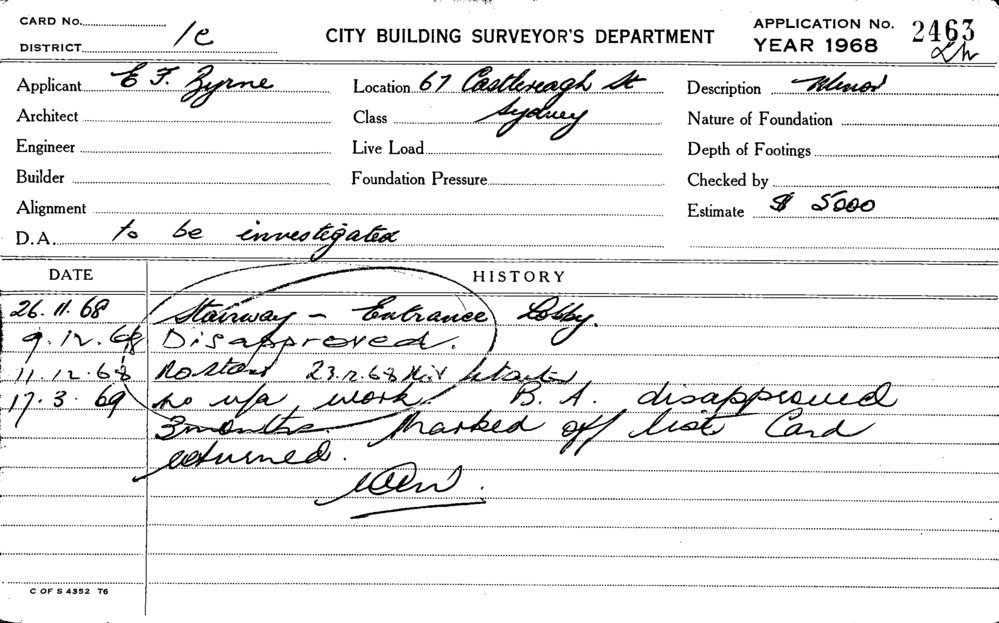 CARD No.
DISTRICT 1c
CITY BUILDING SURVEYOR'S DEPARTMENT
APPLICATION No. 2463
YEAR 1968
Applicant E F Zyrne
Location 67 Castlereagh St
Description Minor
Architect
Class Sydney
Nature of Foundation
Engineer
Live Load
Depth of Footings
Builder
Foundation Pressure
Checked by
Alignment
Estimate $ 5000
D.A. to be investigated
DATE HISTORY
26.11.68 Stairway - Entrance Lobby.
9.12.68 Disapproved.
11.12.68 23.12.68
17.3.69 no u/a work. B.A. disapproved
3 months. Marked off list Card
returned.
C OF S 4352 T6